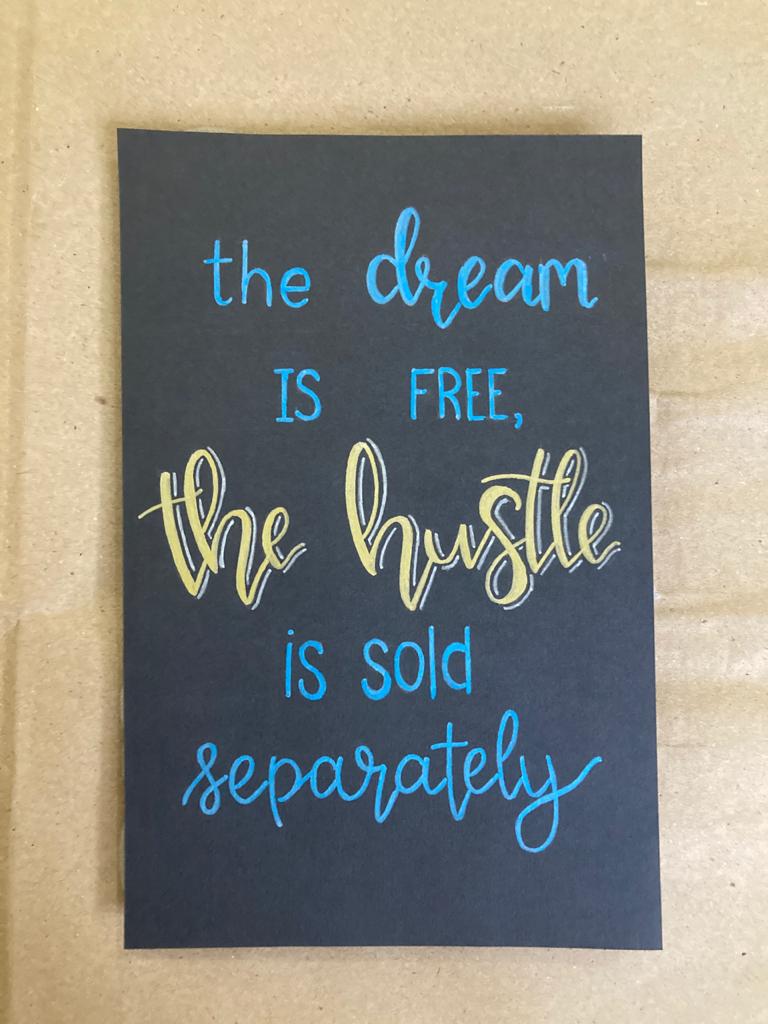 the dream
IS FREE,
the hustle
is sold
separately